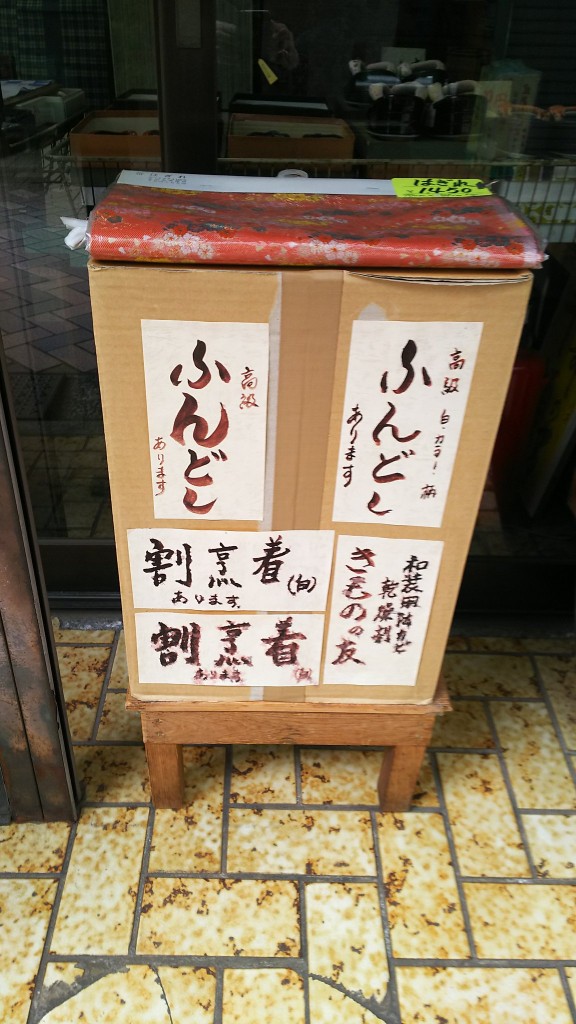 はぎれ
¥1450
高級
ふんどし
あります
高級 白・カラー・柄
ふんどし
あります
割烹着(白)
あります
割烹着(白)
あります
和装用防カビ
乾燥剤
きものの友